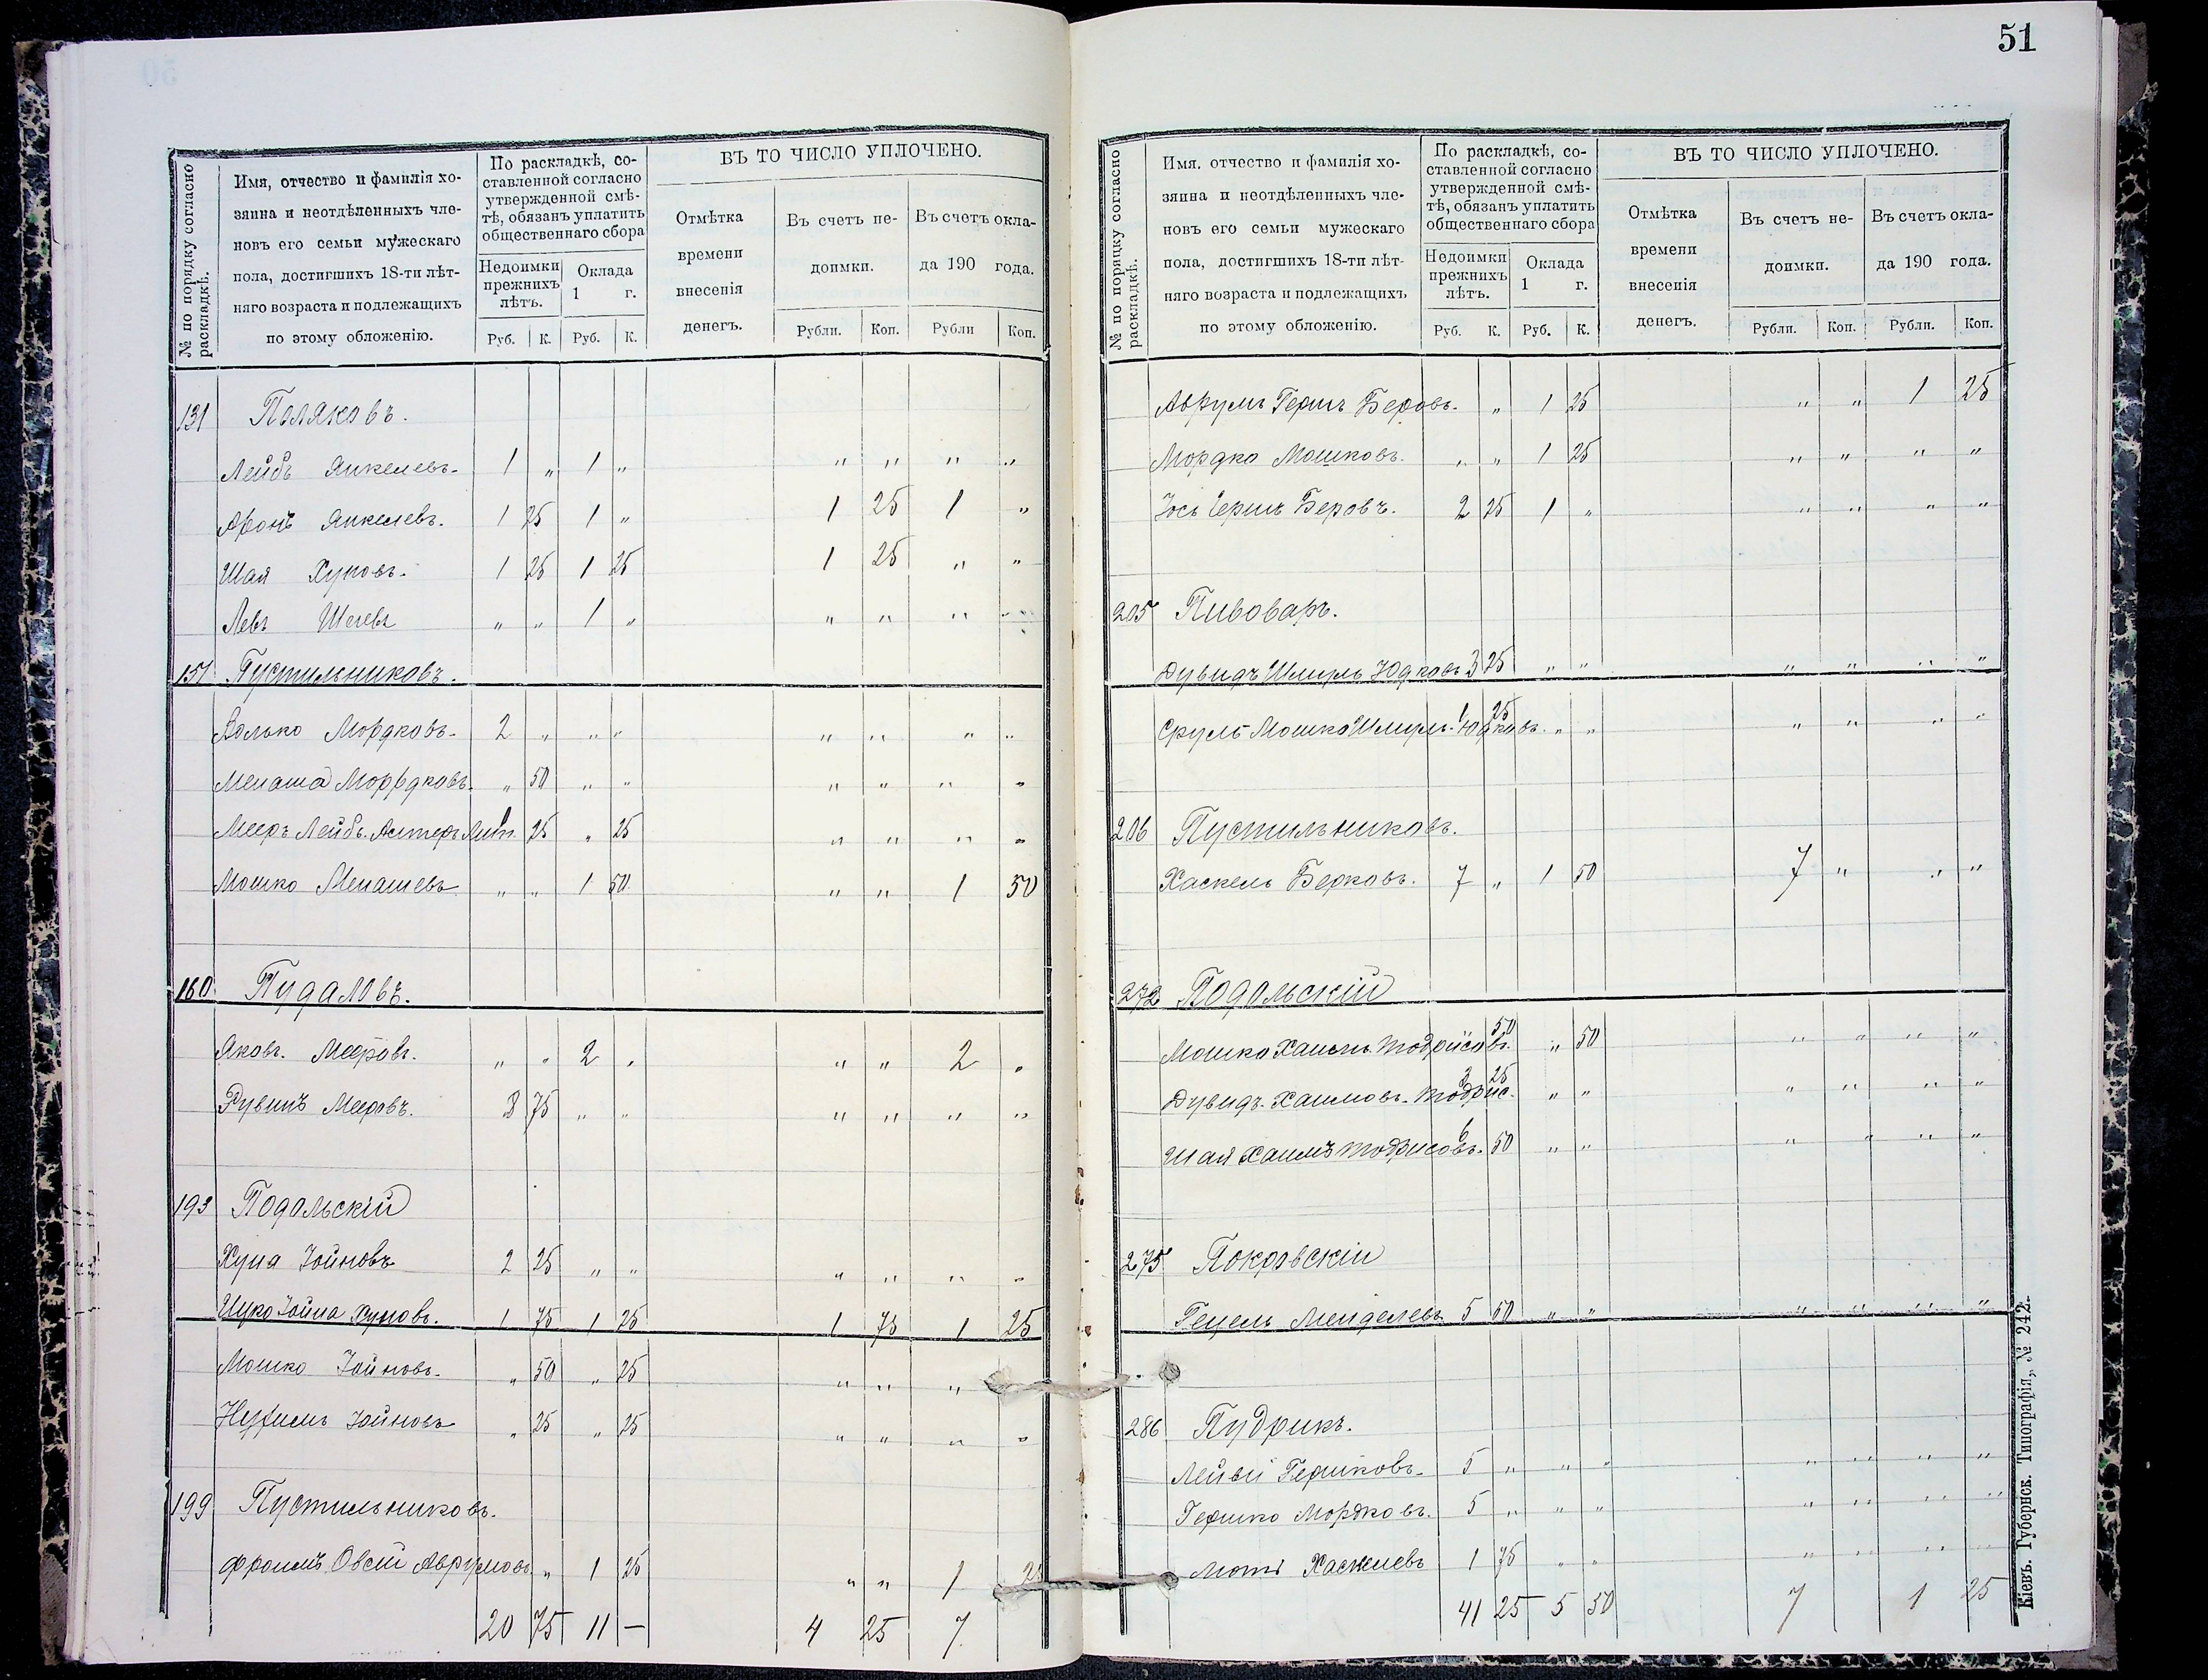 51
№ по порядку согласно раскладкѣ.
Имя, отчество и фамилія хозяина и неотдѣленныхъ членовъ его семьи мужескаго пола, достигшихъ 18-ти лѣтняго возраста и подлежащихъ по этому обложенію.
По раскладкѣ, составленной согласно утвержденной смѣтѣ, обязанъ уплатить общественнаго сбора
Недоимки прежнихъ лѣтъ.
Оклада 1 г.
Руб. К. Руб. К.
ВЪ ТО ЧИСЛО УПЛОЧЕНО.
Отмѣтка времени внесенія денегъ.
Въ счетъ недоимки.
Въ счетъ оклада 190 года.
Рубли. Коп. Рубли Коп.
131 Поляковъ.
Лейбъ Янкелевъ. 1 „ 1 „ „ „ „ „
Аронъ Янкелевъ. 1 25 1 „ 1 25 1 „
Шая Хуновъ. 1 25 1 25 1 25 „ „
Левъ Шаевъ „ „ 1 „ „ „ „ „
151 Пустильниковъ.
Волько Мордковъ. 2 „ „ „ „ „ „ „
Менаша Мордковъ. „ 50 „ „ „ „ „ „
Мееръ Лейбъ 1 25 „ 25 „ „ „ „
Мошко Менашевъ „ „ 1 50 „ „ 1 50
160 Пудаловъ.
Яковъ Мееровъ. „ „ 2 „ „ „ 2 „
Рувинъ Мееровъ. 8 75 „ „ „ „ „ „
193 Подольскій
Хуна Іойновъ 2 25 „ „ „ „ „ „
Ицко Іойна Хуновъ. 1 75 1 25 1 75 1 25
Мошко Іойновъ. „ 50 „ 25 „ „ „
Нухимъ Іойновъ „ 25 „ 25 „ „ „ „
199 Пустильниковъ.
Фроимъ Овсей Аврумовъ „ 1 25 „ „ 1 25
20 75 11 — 4 25 7
№ по порядку согласно раскладкѣ.
Имя, отчество и фамилія хозяина и неотдѣленныхъ членовъ его семьи мужескаго пола, достигшихъ 18-ти лѣтняго возраста и подлежащихъ по этому обложенію.
По раскладкѣ, составленной согласно утвержденной смѣтѣ, обязанъ уплатить общественнаго сбора
Недоимки прежнихъ лѣтъ.
Оклада 1 г.
Руб. К. Руб. К.
ВЪ ТО ЧИСЛО УПЛОЧЕНО.
Отмѣтка времени внесенія денегъ.
Въ счетъ недоимки.
Въ счетъ оклада 190 года.
Рубли. Коп. Рубли. Коп.
Аврумъ Гершъ Беровъ. „ 1 25 „ „ 1 25
Мордко Мошковъ. „ „ 1 25 „ „ „ „
Іось Гершъ Беровъ. 2 25 1 „ „ „ „ „
205 Пивоваръ.
Дувидъ Шмуль Юдковъ 3 25 „ „ „ „ „ „
Сруль Мошко Шмуль Юдковъ. 1 25 „ „ „ „ „ „
206 Пустильниковъ.
Хаскель Берковъ. 7 „ 1 50 7 „ „ „
272 Подольскій
Мошко Хаимъ Тодрисовъ. 50 „ 50 „ „ „ „
Дувидъ Хаимовъ. Тодрис. 8 25 „ „ „ „ „ „
Шая Хаимъ Тодрисовъ. 6 50 „ „ „ „ „ „
275 Покровскій
Гецель Менделевъ 5 50 „ „ „ „ „ „
286 Пудрикъ.
Лейви Гершковъ. 5 „ „ „ „ „ „ „
Гершко Мордковъ. 5 „ „ „ „ „ „ „
Мотя Хаскилевъ 1 75 „ „ „ „ „ „
41 25 5 50 7 1 25
Кіевъ. Губернск. Типографія, № 242.